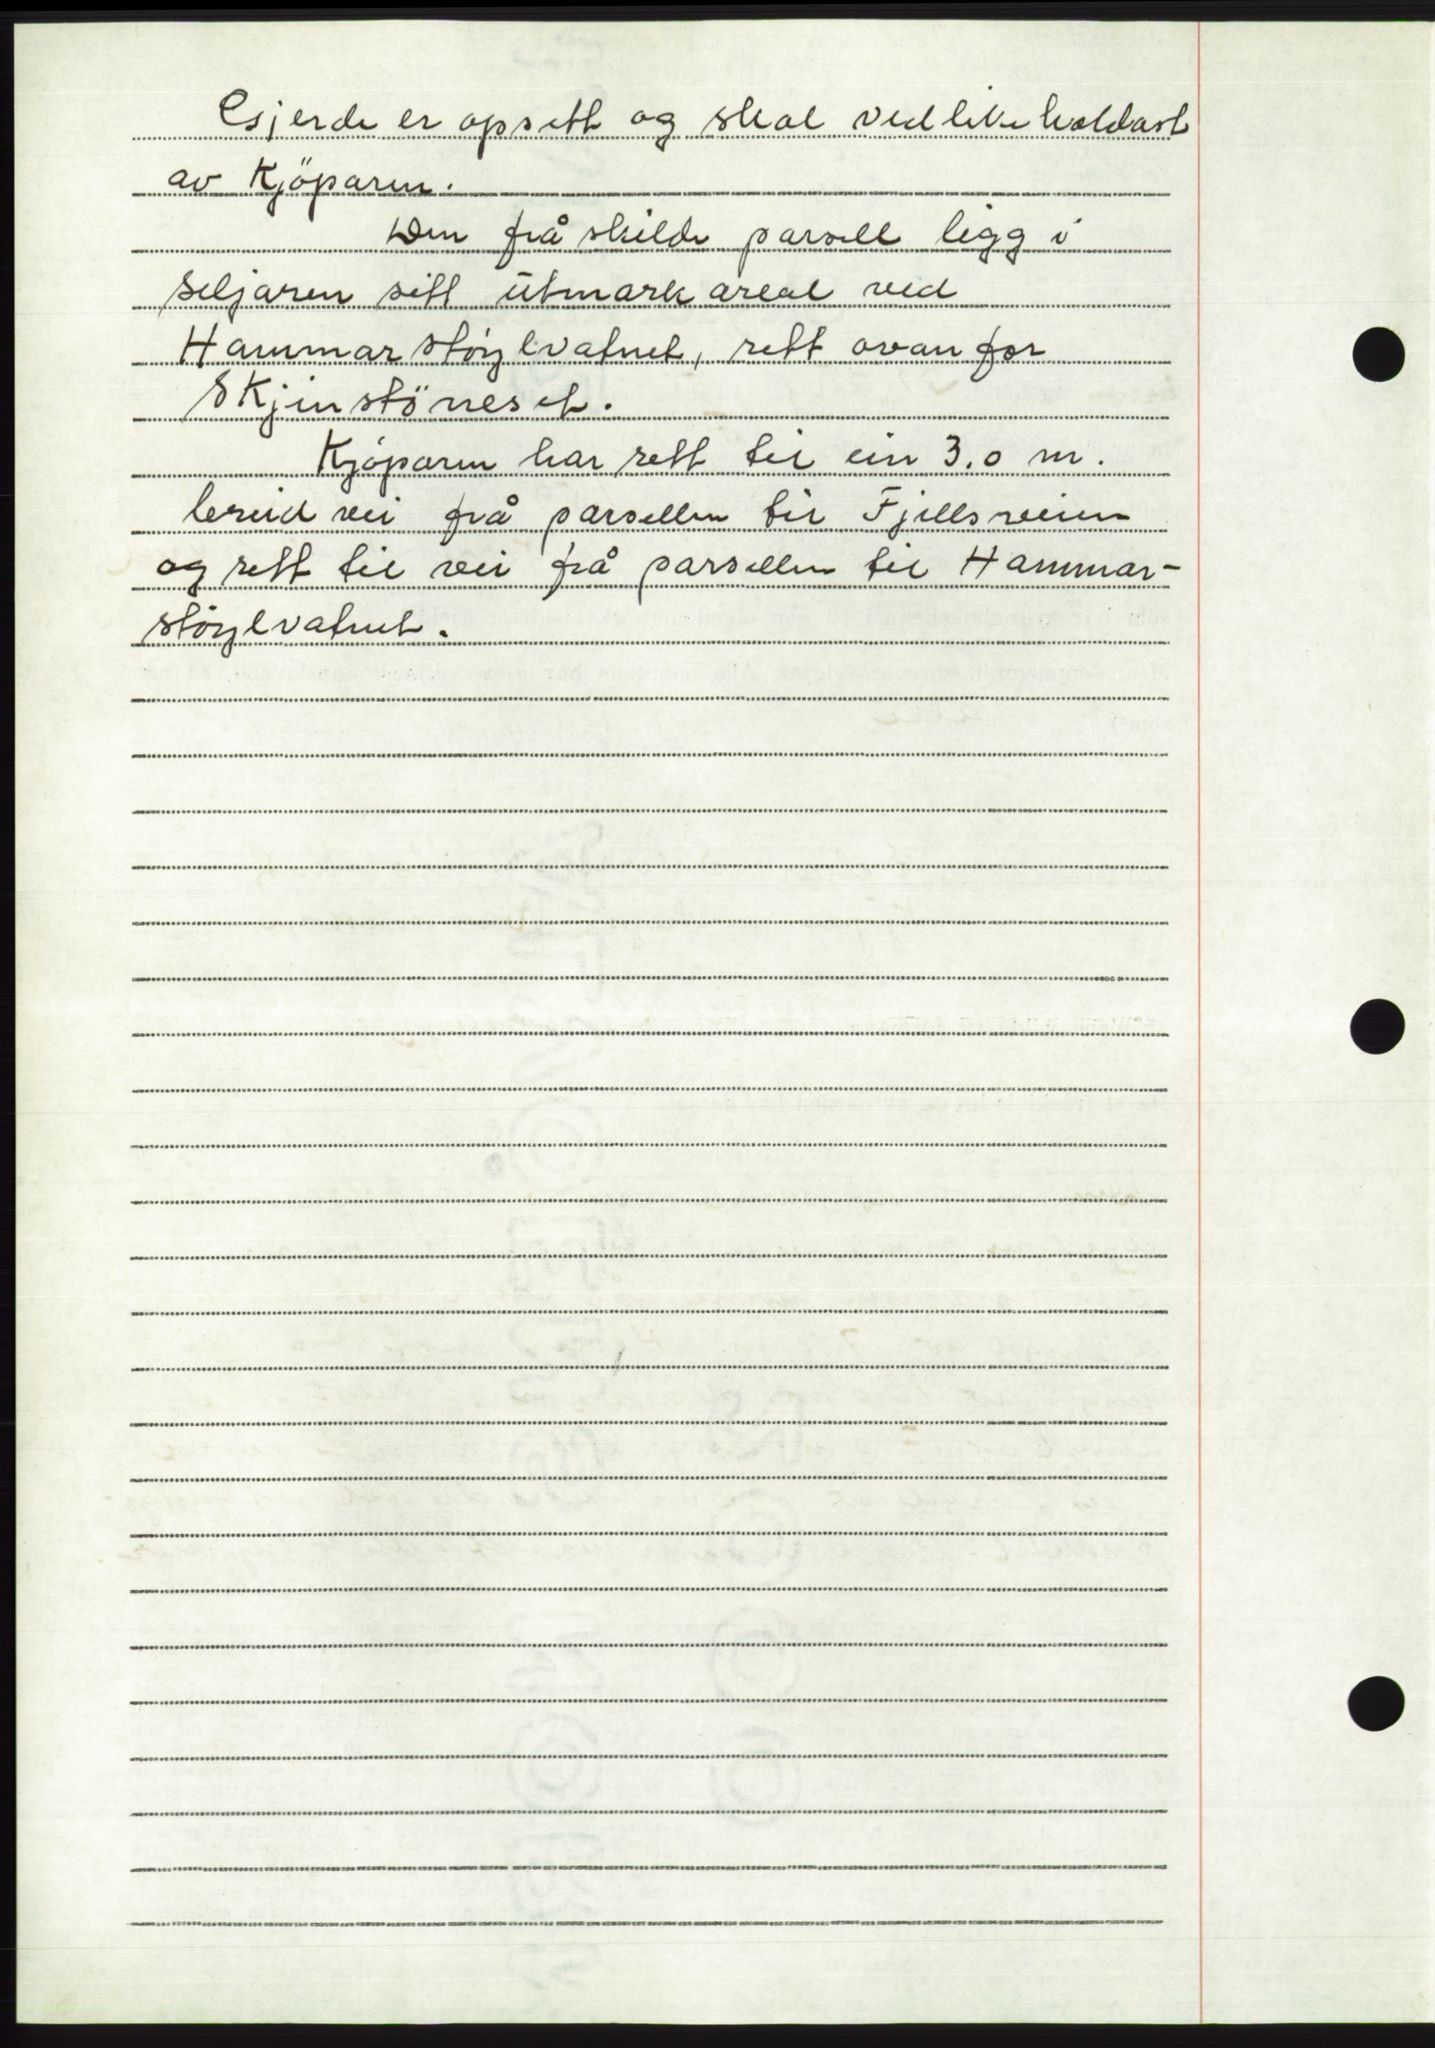 Gjerde er opsett og skal vedlikeholdast
av Kjöparen.
Den fråskilde parsell ligg i
seljaren sitt útmark areal ved
Hammarstöylvatnet, rett ovanfor
Skjinstöneset.
Kjöparen har rett til ein 3.0 m.
breid vei frå parsellen til Fjellsveien
og rett til vei frå parsellen til Hammar-
stöylvatnet.